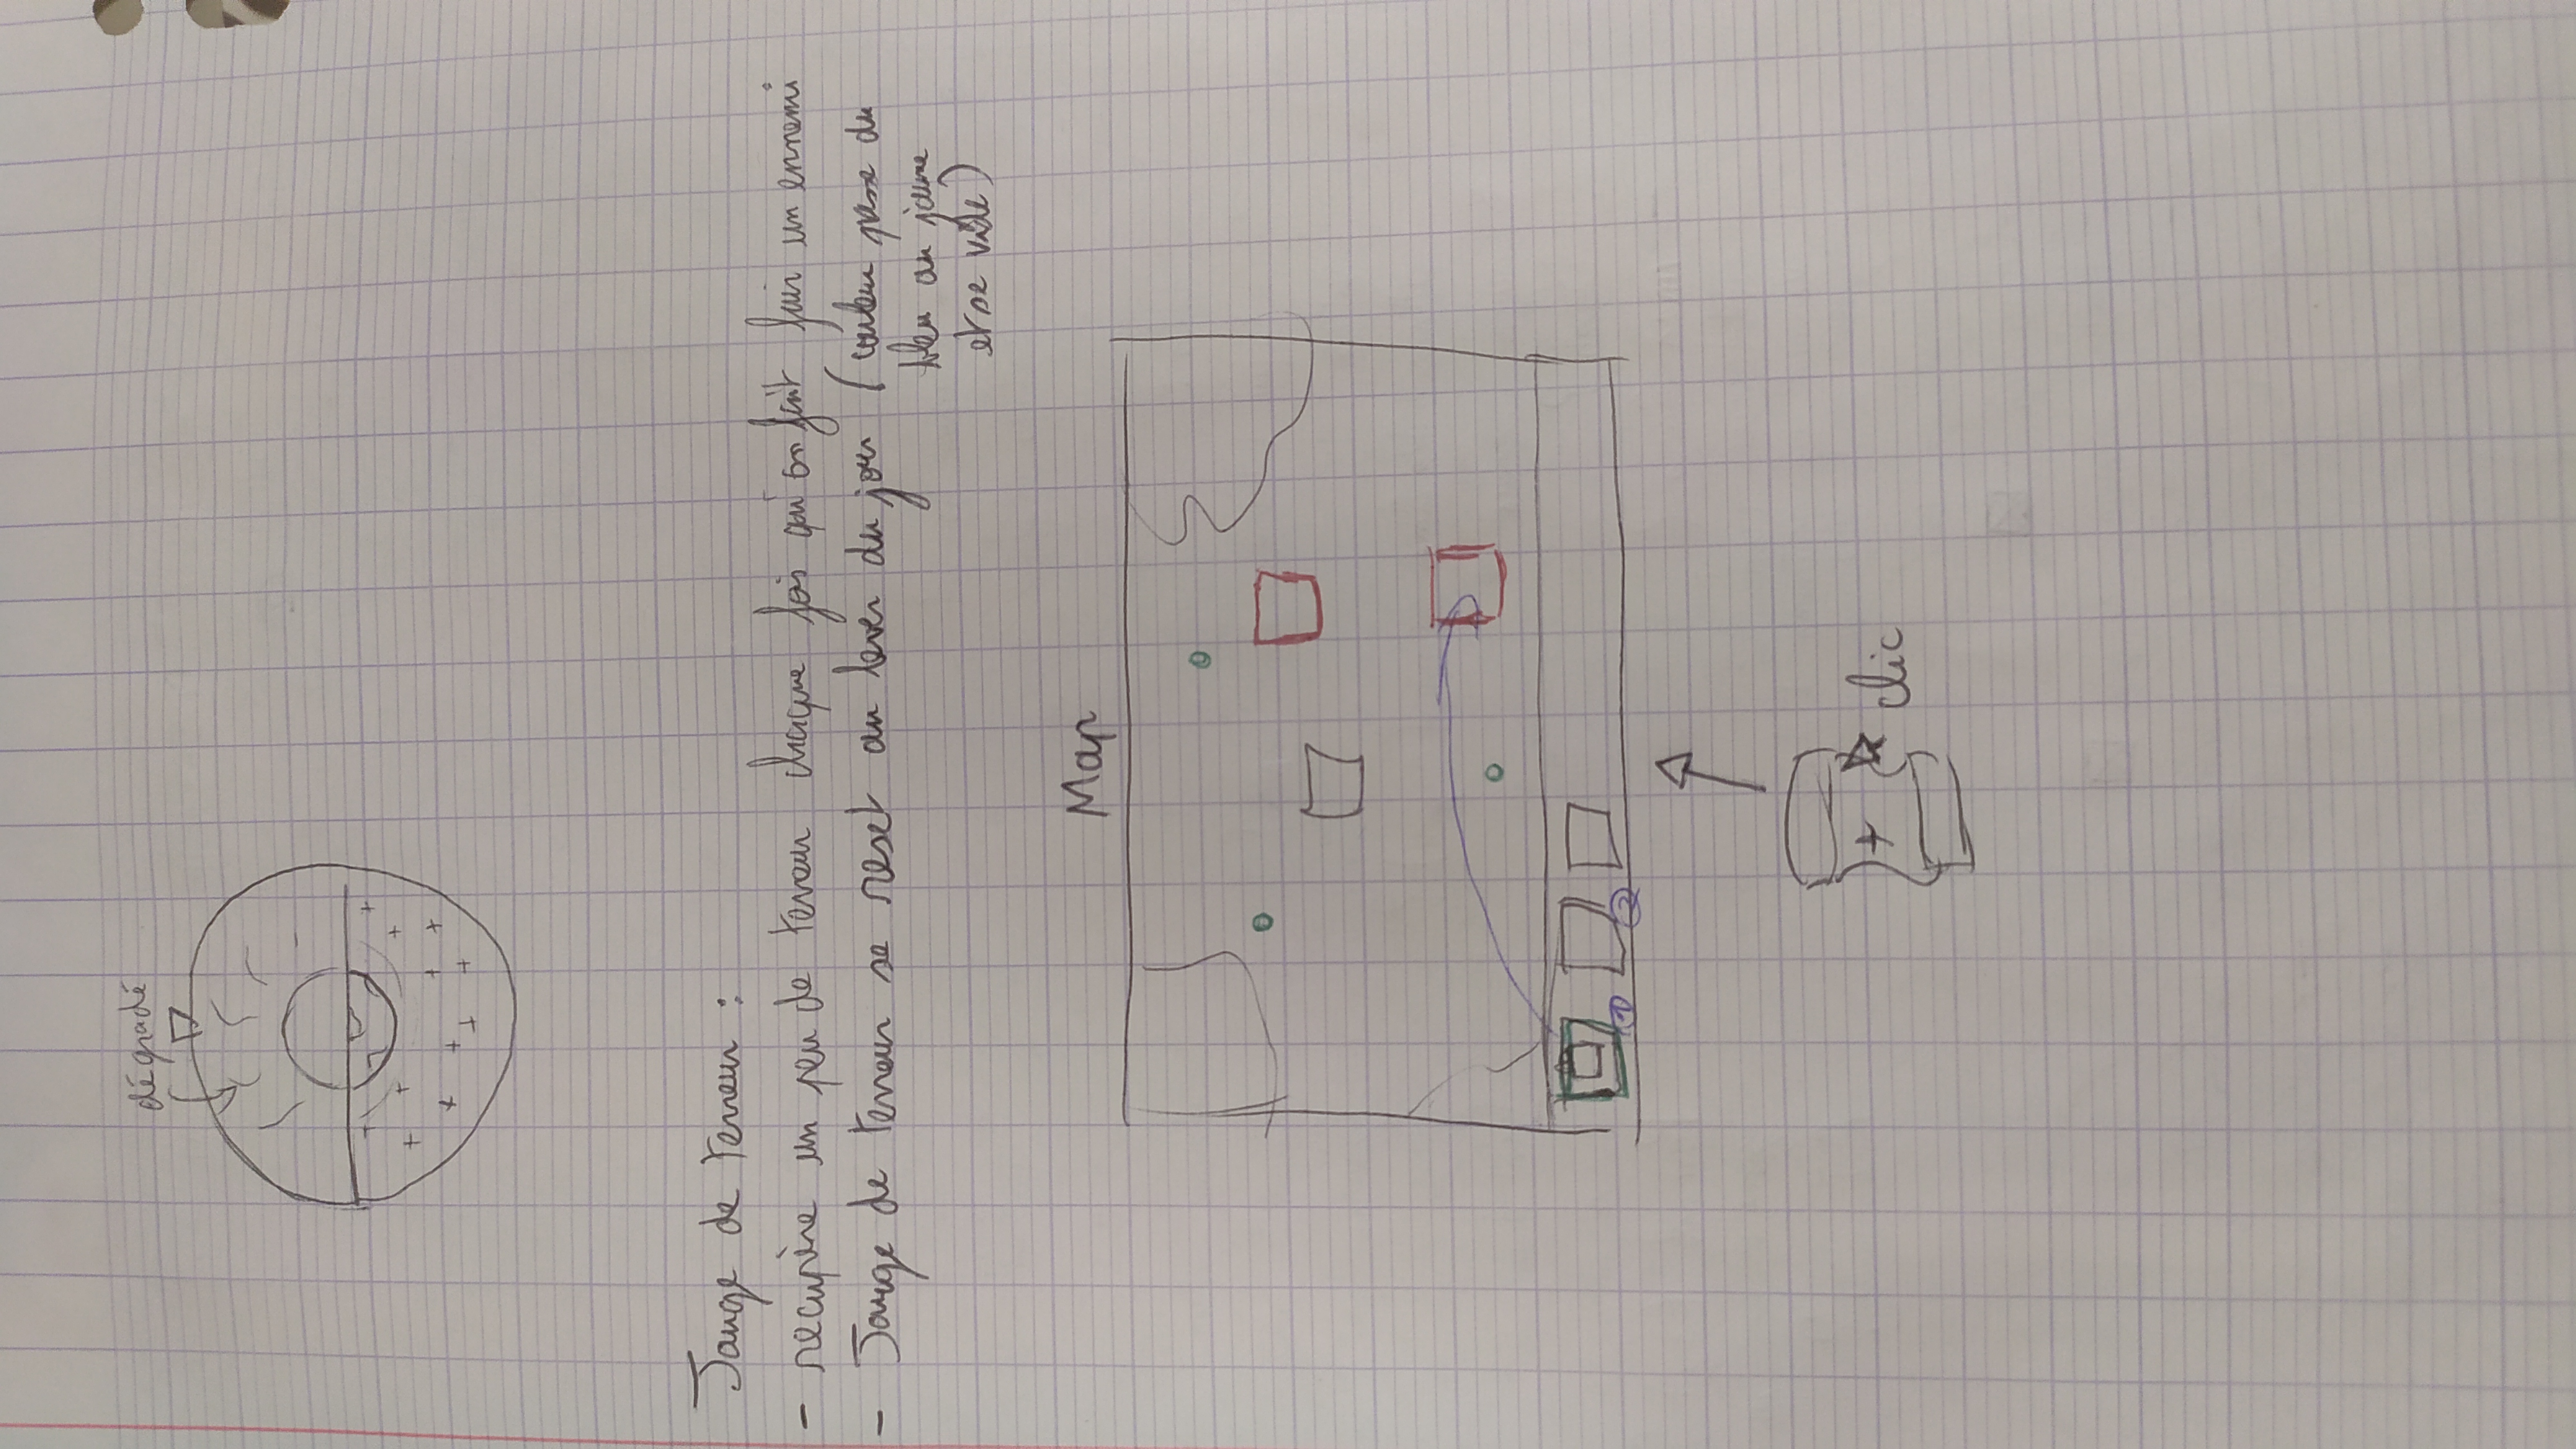 dégradé
Jauge de terreur :
- récupère un peu de terreur chaque fois qu'on fait fuir un ennemi
- Jauge de terreur se reset au lever du jour (couleur passe du
bleu au jaune
et se vide)
Map
1 2
+ clic